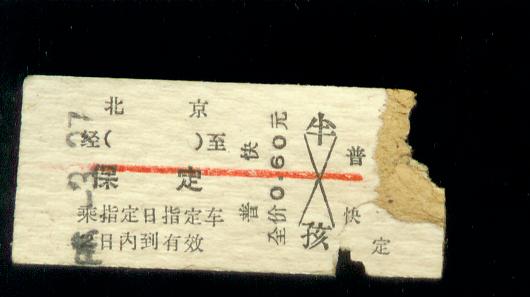 北 京
经( )至
保 定
乘指定日指定车
日内到有效
普 快
全价0.60元
半
孩
普
快
定